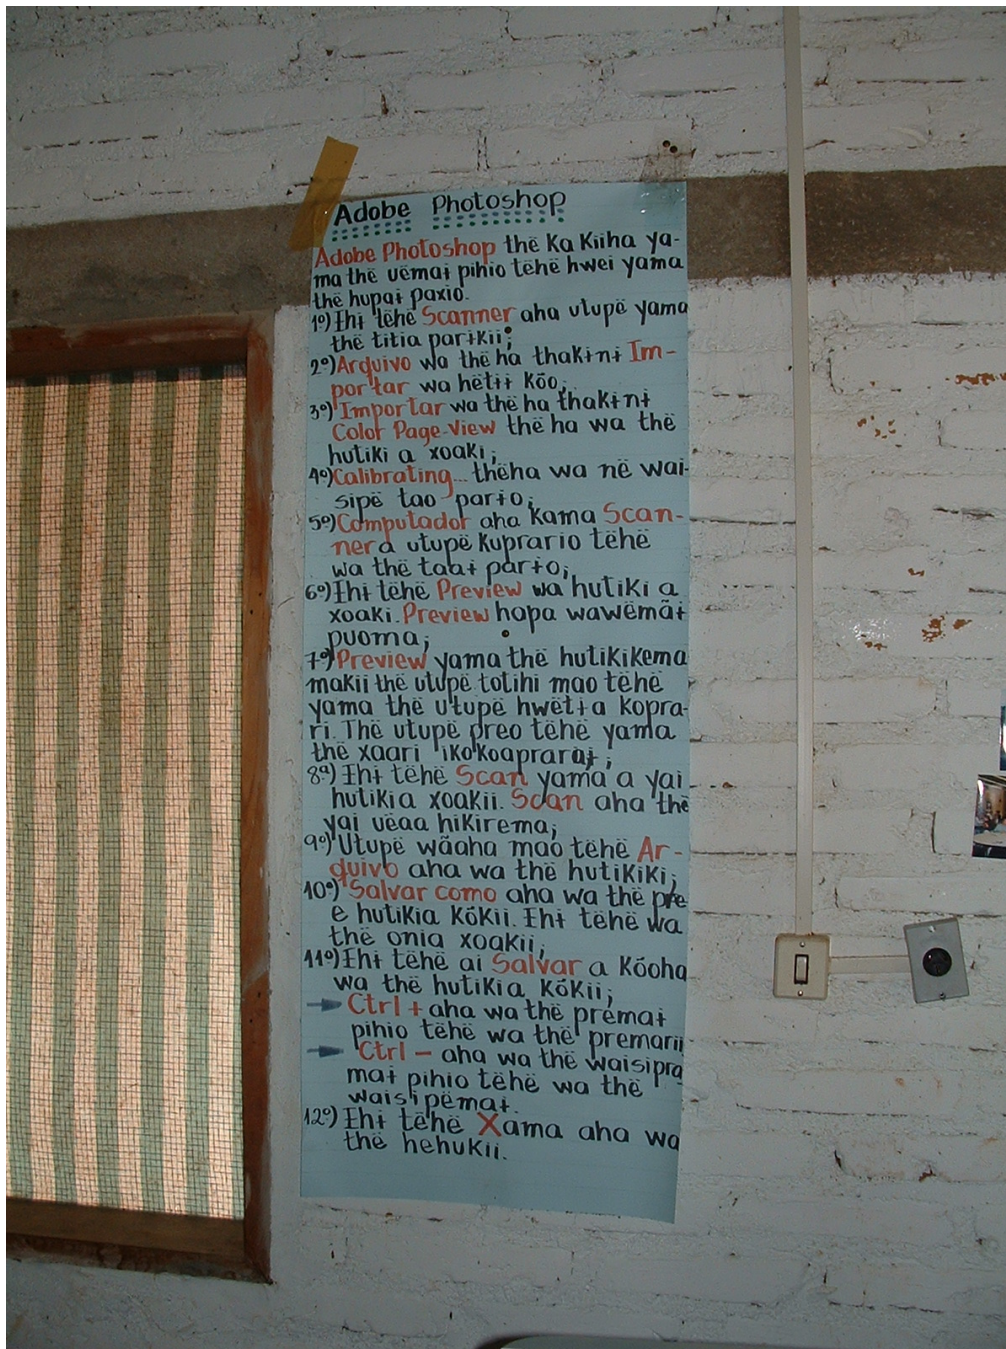 Adobe Photoshop
Adobe Photoshop thë ka Kiiha ya-
ma thë uëmaɨ pihio tëhë hwei yama
thë hupaɨ paxio.
1º) Ehɨ tëhë Scanner aha utupë yama
thë titia parɨkii;
2º) Arquivo wa thë ha thakɨnɨ Im-
portar wa hëtɨɨ kõo;
3º) Importar wa thë ha thakɨnɨ
Color Page-View thë ha wa thë
hutiki a xoaki;
4º) Calibrating... thëha wa në wai-
sipë tao parɨo;
5º) Computador aha kama Scan-
ner a utupë kuprario tëhë
wa thë taaɨ parɨo;
6º) Ehɨ tëhë Preview wa hutiki a
xoaki. Preview hapa wawëmãɨ
puoma;
7º) Preview yama thë hutikikema
makii thë utupë totihi mao tëhë
yama thë utupë hwëtɨa kopra-
ri. Thë utupë preo tëhë yama
thë xaari ikokoapraraɨ;
8º) Ehɨ tëhë Scan yama a yai
hutikia xoakii. Scan aha thë
yai uëaa hikirema;
9º) Utupë wãaha mao tëhë Ar-
quivo aha wa thë hutikiki;
10º) Salvar como aha wa thë pre
e hutikia kõkii. Ehɨ tëhë wa
thë onia xoakii;
11º) Ehɨ tëhë ai Salvar a kõoha
wa thë hutikia kõkii;
→ Ctrl + aha wa thë prëmaɨ
pihio tëhë wa thë premarii
→ Ctrl – aha wa thë waisipra
maɨ pihio tëhë wa thë
waisipëmaɨ.
12º) Ehɨ tëhë Xama aha wa
thë hehukii.